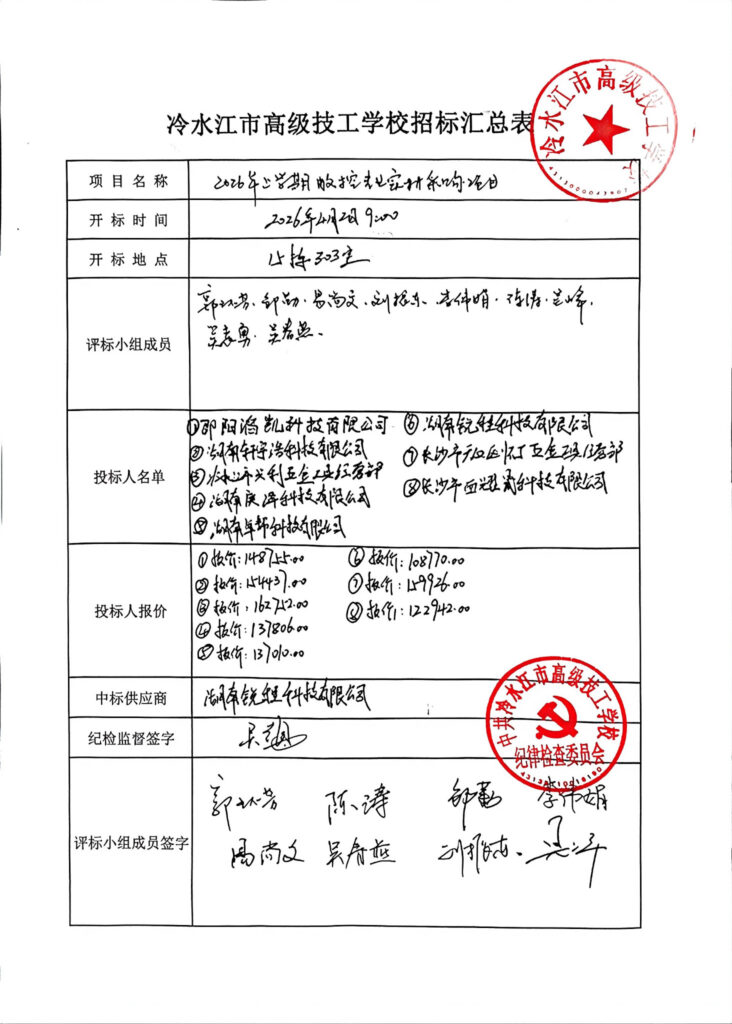 冷水江市高级技工学校招标汇总表
冷水江市高级技工学校
项目名称
2026年上学期数控专业实训采购项目
开标时间
2026年4月2日9:00
开标地点
15栋303室
评标小组成员
邹勤·易尚文·刘振东·李伟娟·陈涛·
吴春燕.
投标人名单
①邵阳滔凯科技有限公司
②湖南轩宇浩科技有限公司
③冷水江市兴利五金工具经营部
④湖南庆泽科技有限公司
⑤湖南卓郡科技有限公司
⑥湖南锐胜科技有限公司
⑦长沙市五金工具经营部
⑧长沙市科技有限公司
投标人报价
①报价:148755.00
②报价:154437.00
③报价:162752.00
④报价:137806.00
⑤报价:137010.00
⑥报价:108770.00
⑦报价:159926.00
⑧报价:122942.00
中标供应商
湖南锐胜科技有限公司
纪检监督签字
中共冷水江市高级技工学校
纪律检查委员会
评标小组成员签字
陈涛 邹勤 李伟娟
易尚文 吴春燕 刘振东